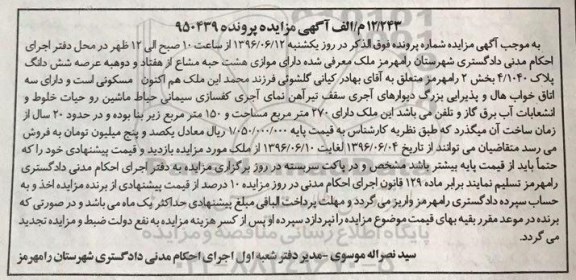 ۱۲/۲۴۳/م/الف آگهی مزایده پرونده ۹۵۰۴۳۹
به موجب آگهی مزایده شماره پرونده فوق الذکر در روز یکشنبه ۱۳۹۶/۰۶/۱۲ از ساعت ۱۰ صبح الی ۱۲ ظهر در محل دفتر اجرای
احکام مدنی دادگستری شهرستان رامهرمز ملک معرفی شده دارای موازی هشت حبه مشاع از هفتاد و دوهبه عرصه شش دانگ
پلاک ۴/۱۰۴۰ بخش ۲ رامهرمز متعلق به آقای بهادر کیانی گلشوئی فرزند محمد این ملک هم اکنون مسکونی است و دارای سه
اتاق خواب هال و پذیرایی بزرگ دیوارهای آجری سقف تیرآهن نمای آجری کفسازی سیمانی حیاط ماشین رو حیات خلوط و
انشعابات آب برق گاز و تلفن می باشد این ملک دارای ۲۷۰ متر مربع مساحت و ۱۵۰ متر مربع زیر بنا بوده و در حدود ۲۰ سال از
زمان ساخت آن میگذرد که طبق نظریه کارشناس به قیمت پایه ۱/۰۵۰/۰۰۰/۰۰۰ ریال معادل یکصد و پنج میلیون تومان به فروش
می رسد متقاضیان می توانند از تاریخ ۱۳۹۶/۰۶/۰۴ لغایت ۱۳۹۶/۰۶/۱۰ از ملک مورد مزایده بازدید و قیمت پیشنهادی خود را که
حتماً باید از قیمت پایه بیشتر باشد مشخص و در پاکت سربسته در روز برگزاری مزایده به دفتر اجرای احکام مدنی دادگستری
رامهرمز تسلیم نمایند برابر ماده ۱۲۹ قانون اجرای احکام مدنی در روز مزایده ۱۰ درصد از قیمت پیشنهادی از برنده مزایده اخذ و به
حساب سپرده دادگستری رامهرمز واریز می گردد و مهلت پرداخت الباقی مبلغ پیشنهادی حداکثر یک ماه می باشد و در صورتی که
برنده در موعد مقرر بقیه بهای قیمت موضوع مزایده را نپردازد سپرده او پس از کسر هزینه مزایده به نفع دولت ضبط و مزایده تجدید
می گردد.
سید نصراله موسوی -مدیر دفتر شعبه اول اجرای احکام مدنی دادگستری شهرستان رامهرمز